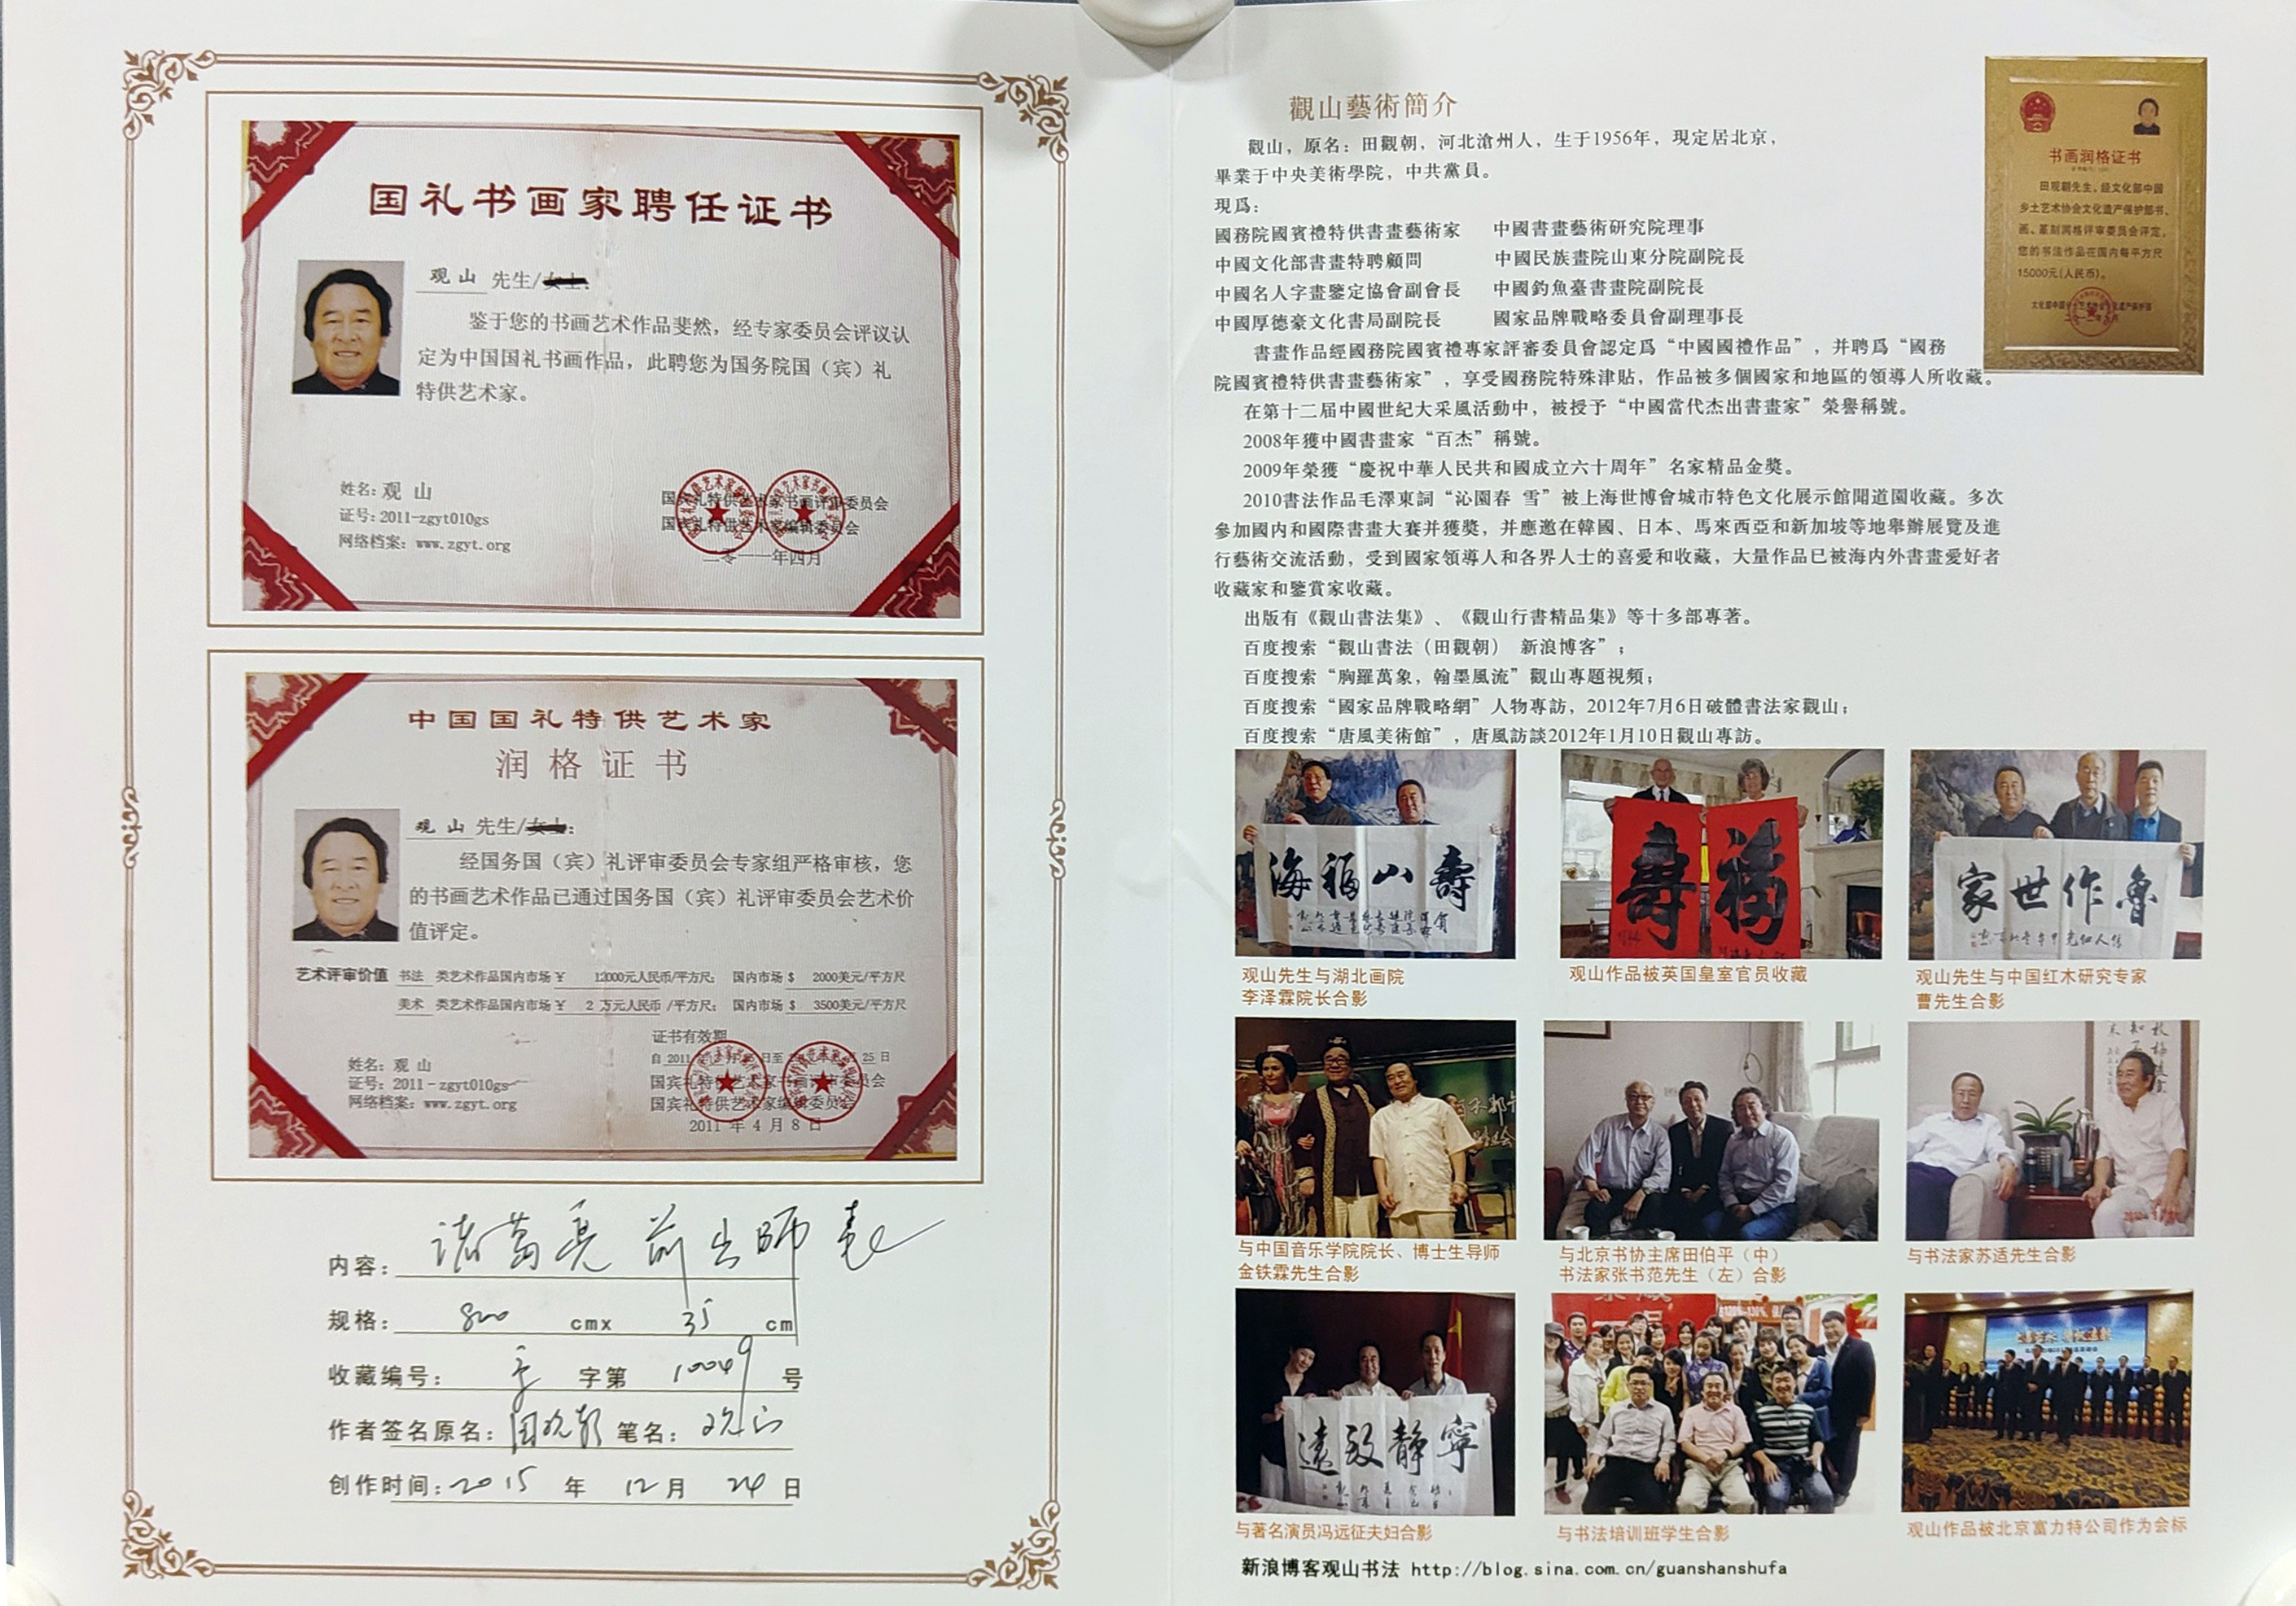 国礼书画家聘任证书
观山 先生/女士:
鉴于您的书画艺术作品斐然，经专家委员会评议认
定为中国国礼书画作品，此聘您为国务院国（宾）礼
特供艺术家。
姓名:观 山
证号:2011-zgyt010gs
网络档案: www.zgyt.org
国宾礼特供艺术家书画评审委员会
国宾礼特供艺术家编辑委员会
二零一一年四月
中国国礼特供艺术家
润格证书
观 山 先生/女士:
经国务国（宾）礼评审委员会专家组严格审核，您
的书画艺术作品已通过国务国（宾）礼评审委员会艺术价
值评定。
艺术评审价值 书法 类艺术作品国内市场￥ 12000元人民币/平方尺; 国内市场＄ 2000美元/平方尺
美术 类艺术作品国内市场￥ 2 万元人民币 /平方尺; 国内市场＄ 3500美元/平方尺
证书有效期
自 2011 日至 25 日
姓名: 观 山
证号: 2011-zgyt010gs
网络档案: www.zgyt.org
国宾礼特供艺术家书画评审委员会
国宾礼特供艺术家编辑委员会
2011 年 4 月 8 日
内容: 诸葛亮 前出师表
规格: 800 cmx 35 cm
收藏编号: 字第 10049 号
作者签名原名: 田观朝 笔名: 观山
创作时间: 2015 年 12 月 24 日
觀山藝術簡介
觀山，原名：田觀朝，河北滄州人，生于1956年，現定居北京，
畢業于中央美術學院，中共黨員。
現爲：
國務院國賓禮特供書畫藝術家 中國書畫藝術研究院理事
中國文化部書畫特聘顧問 中國民族畫院山東分院副院長
中國名人字畫鑒定協會副會長 中國釣魚臺書畫院副院長
中國厚德豪文化書局副院長 國家品牌戰略委員會副理事長
書畫作品經國務院國賓禮專家評審委員會認定爲“中國國禮作品”，并聘爲“國務
院國賓禮特供書畫藝術家”，享受國務院特殊津貼，作品被多個國家和地區的領導人所收藏。
在第十二届中國世紀大采風活動中，被授予“中國當代杰出書畫家”榮譽稱號。
2008年獲中國書畫家“百杰”稱號。
2009年榮獲“慶祝中華人民共和國成立六十周年”名家精品金獎。
2010書法作品毛澤東詞“沁園春 雪”被上海世博會城市特色文化展示館聞道園收藏。多次
參加國内和國際書畫大賽并獲獎，并應邀在韓國、日本、馬來西亞和新加坡等地舉辦展覽及進
行藝術交流活動，受到國家領導人和各界人士的喜愛和收藏，大量作品已被海内外書畫愛好者
收藏家和鑒賞家收藏。
出版有《觀山書法集》、《觀山行書精品集》等十多部專著。
百度搜索“觀山書法（田觀朝） 新浪博客”；
百度搜索“胸羅萬象，翰墨風流”觀山專題視頻；
百度搜索“國家品牌戰略網”人物專訪，2012年7月6日破體書法家觀山；
百度搜索“唐風美術館”，唐風訪談2012年1月10日觀山專訪。
书画润格证书
田观朝先生，经文化部中国
乡土艺术协会文化遗产保护部书、
画、篆刻润格评审委员会评定，
您的书法作品在国内每平方尺
15000元(人民币)。
海福山壽
壽福
家世作魯
观山先生与湖北画院
李泽霖院长合影
观山作品被英国皇室官员收藏
观山先生与中国红木研究专家
曹先生合影
与中国音乐学院院长、博士生导师
金铁霖先生合影
与北京书协主席田伯平（中）
书法家张书范先生（左）合影
与书法家苏适先生合影
遠致静寧
与著名演员冯远征夫妇合影
与书法培训班学生合影
观山作品被北京富力特公司作为会标
新浪博客观山书法 http://blog.sina.com.cn/guanshanshufa